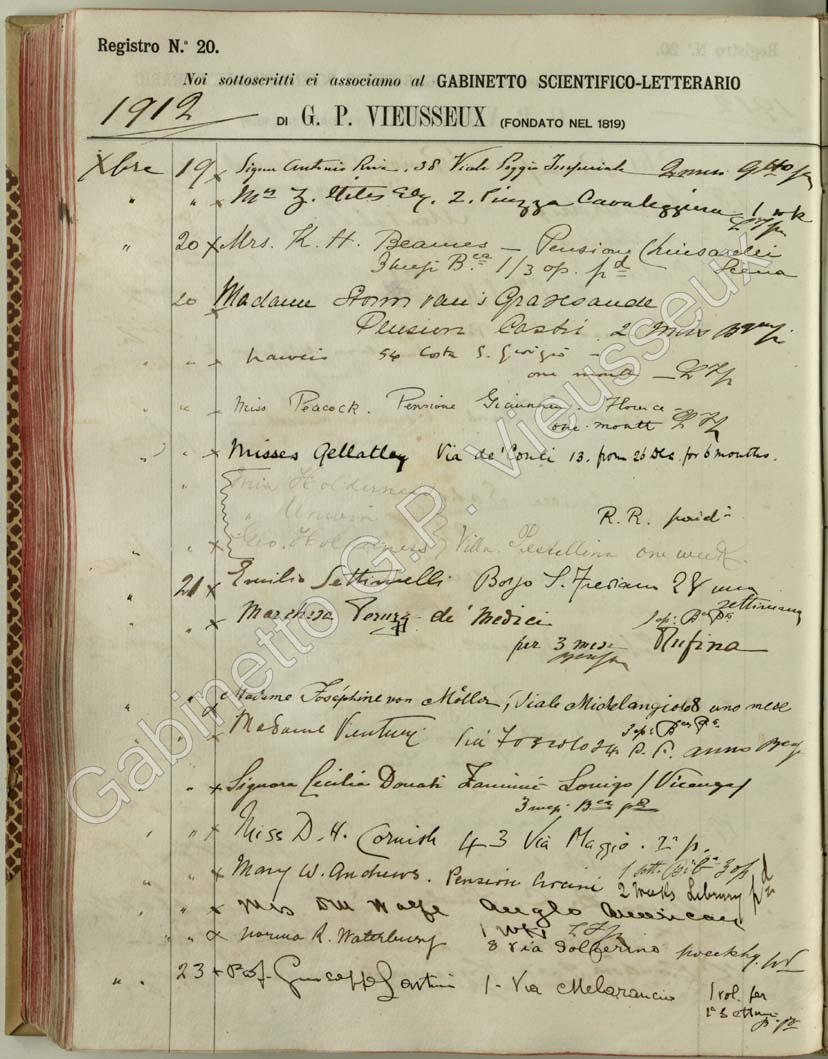 Registro N.º 20.
Noi sottoscritti ci associamo al GABINETTO SCIENTIFICO-LETTERARIO
1912
DI G. P. VIEUSSEUX (FONDATO NEL 1819)
Xbre 19 x Signor Antonio Riva, 38 Viale Poggio Imperiale
" " x 2. Piazza Cavalleggieri 1 wk
" 20 x Mrs. K. H. Beames — Pensione Chiusarelli
3 mesi B.ca 1/3 op. pd Siena
20 x Madame Storm van's Gravesande
Pension Castri 2 mois
" " x 54 Costa S. Giorgio —
one month —
" " x Miss Peacock. Pensione Giannini. Florence —
one month
" " x Misses Gellatley Via de' Conti 13. from 20 Dec. for 6 months.
"
" R. R. paid
" x Villa one week.
" 21 x Emilio Settimelli Borgo S. Frediano 28 una
settimana
" x Marchesa Peruzzi de' Medici
per 3 mesi Rufina
" Madame Joséphine von Möller, Viale Michelangiolo 8 uno mese
" x Madame Venturi Via Foscolo 24 anno
" x Signora Cecilia Donati Lonigo (Vicenza)
3 mesi B.ca pd
" x Miss D. H. Cornish 43 Via Maggio. 2º p.
" " x Mary W. Andrews. Pensione 3 op
2 weeks Library pd
" " x Wolfe Anglo American
" " Norma R. Waterbury 1 wk
8 Via Solferino weekly. pd
" 23 x Prof. Giuseppe 1 - Via Melarancio 1 vol. per
Gabinetto G.P. Vieusseux